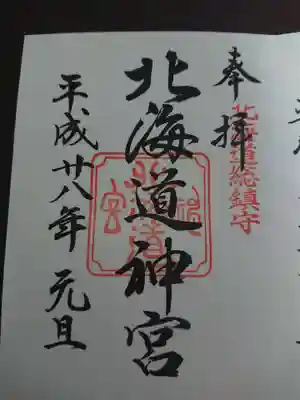 奉拝
北海道総鎮守
北海道神宮
平成廿八年 元旦